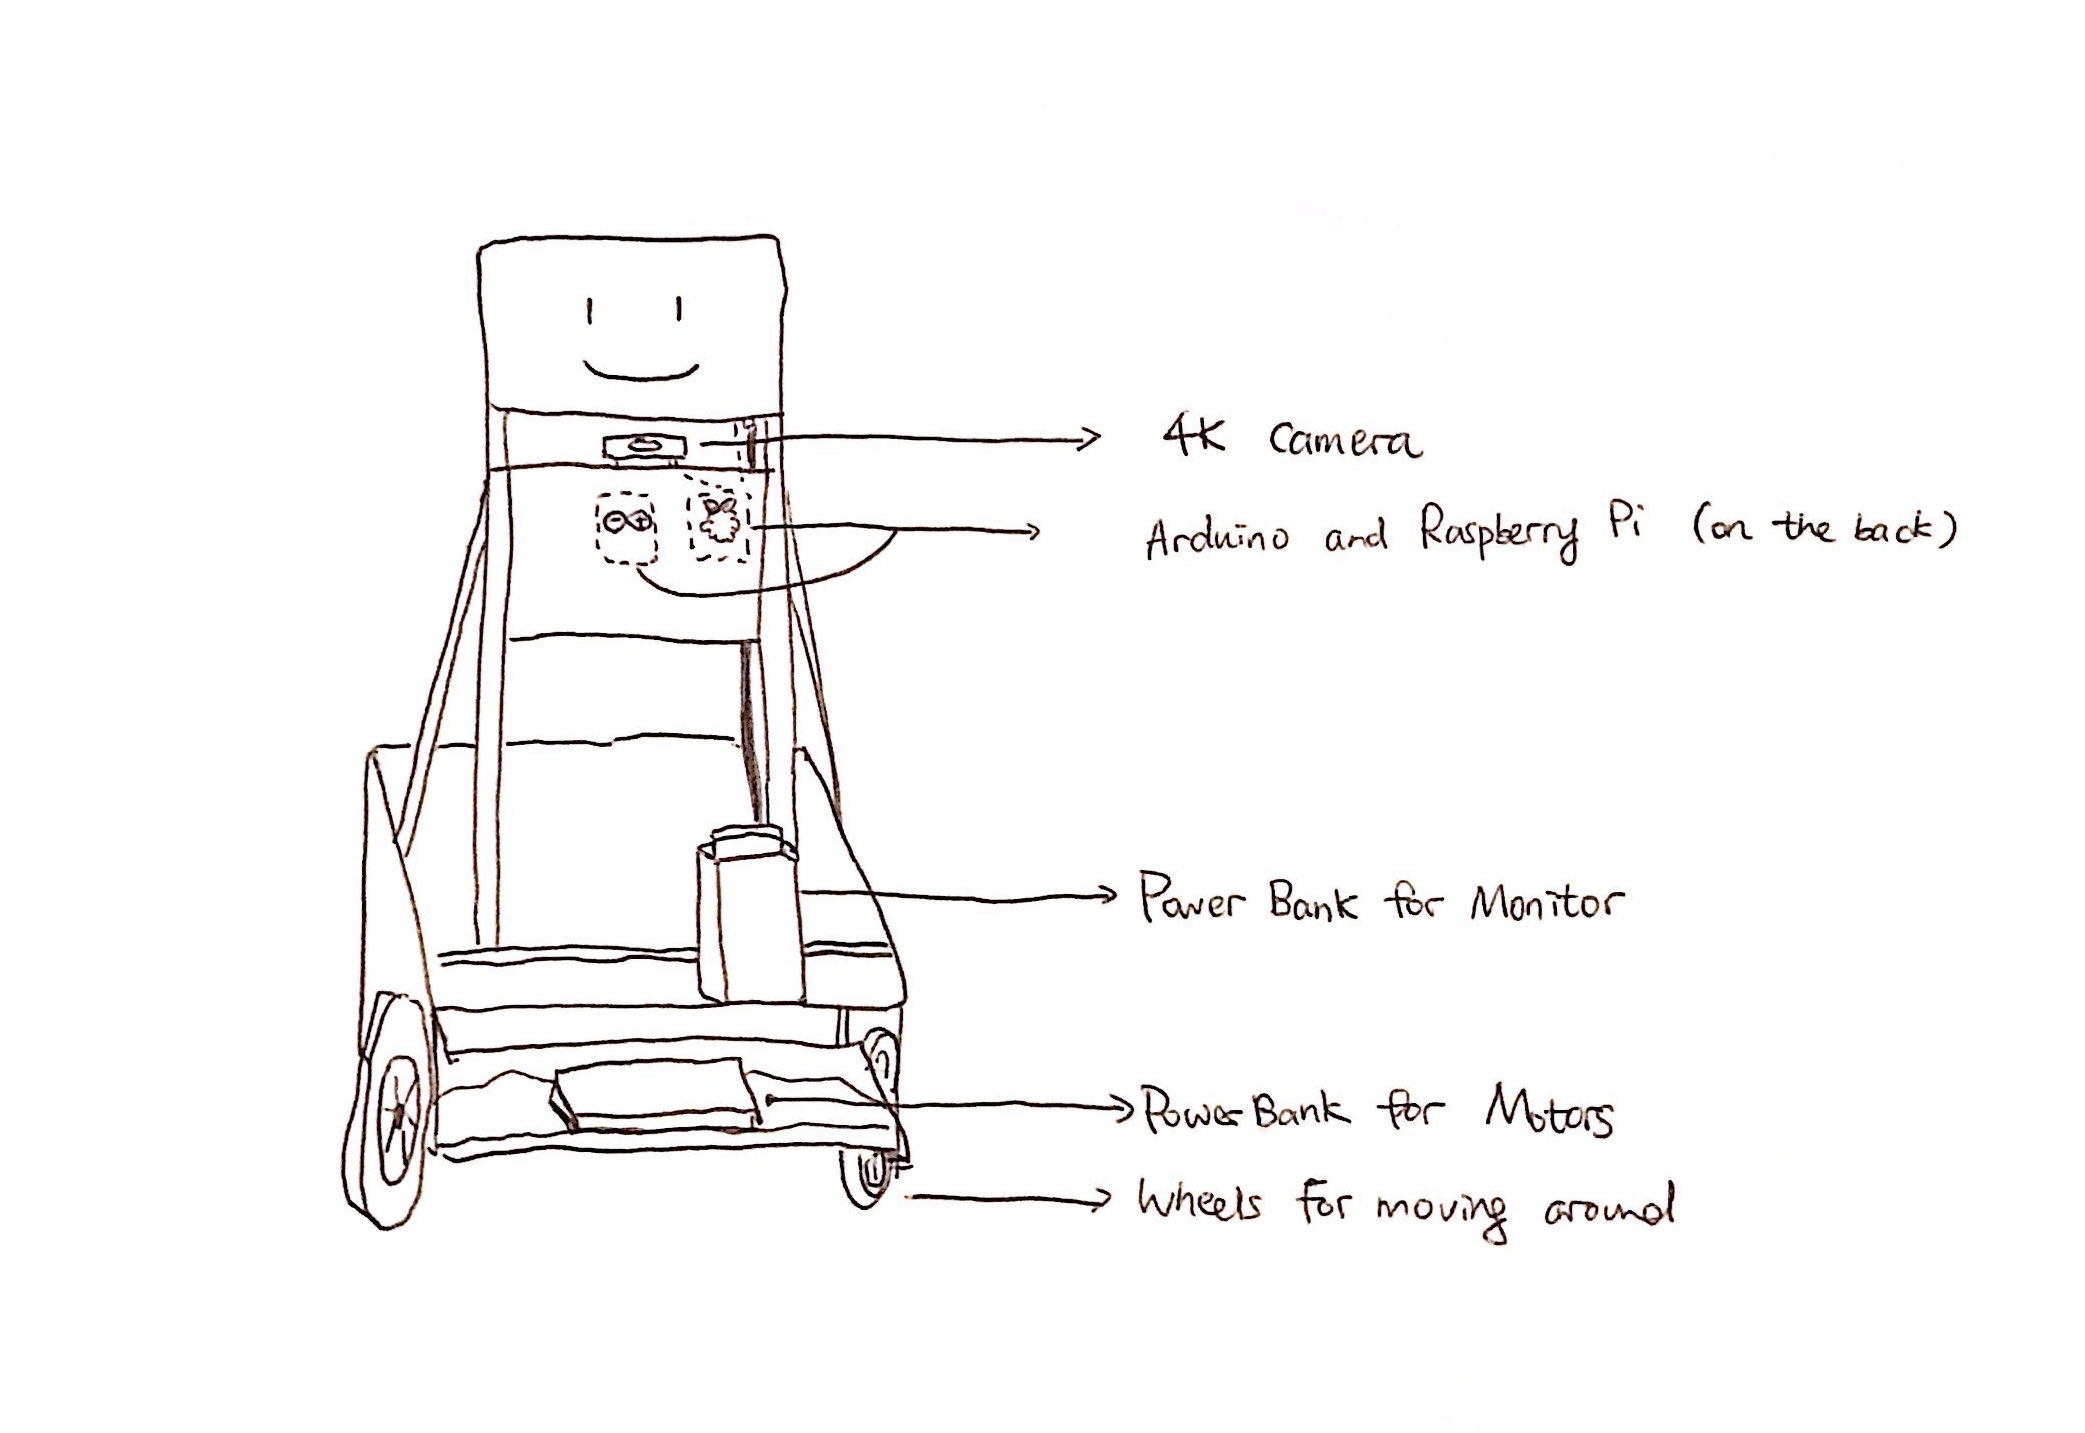 4K Camera
Arduino and Raspberry Pi (on the back)
Power Bank for Monitor
Power Bank for Motors
Wheels for moving around